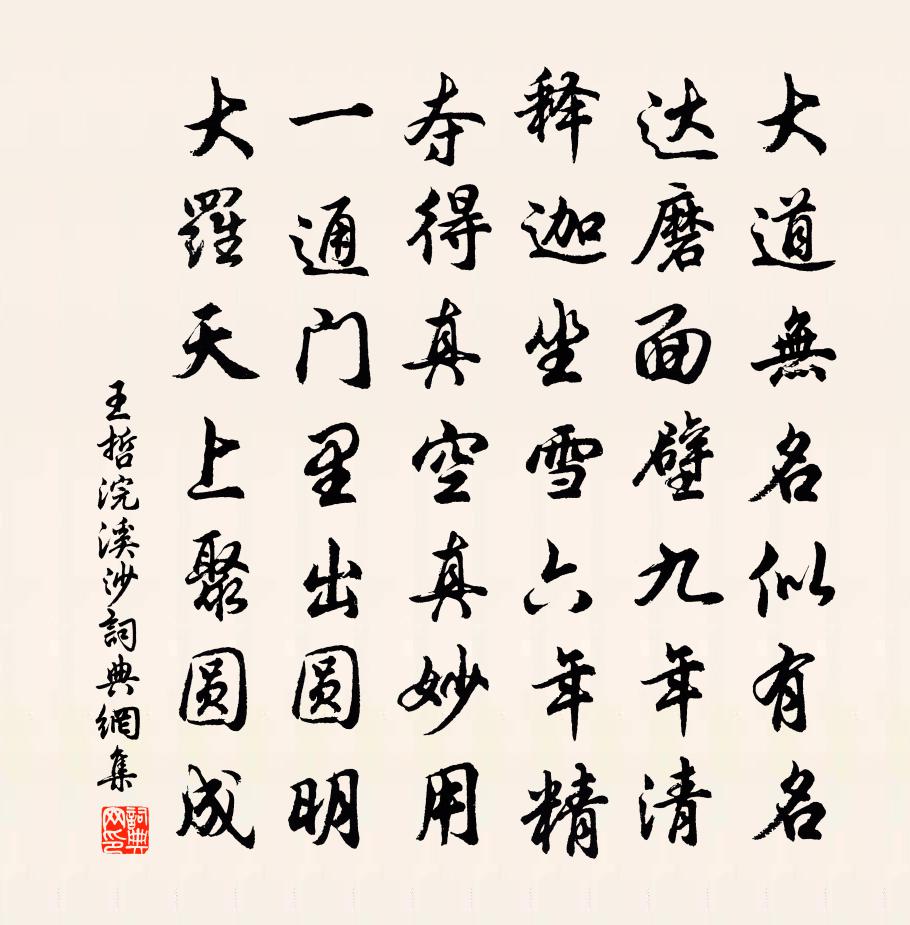 大道無名似有名
达磨面壁九年清
释迦坐雪六年精
夺得真空真妙用
一通门里出圆明
大羅天上聚圆成
王哲浣溪沙詞典網集
詞典网印